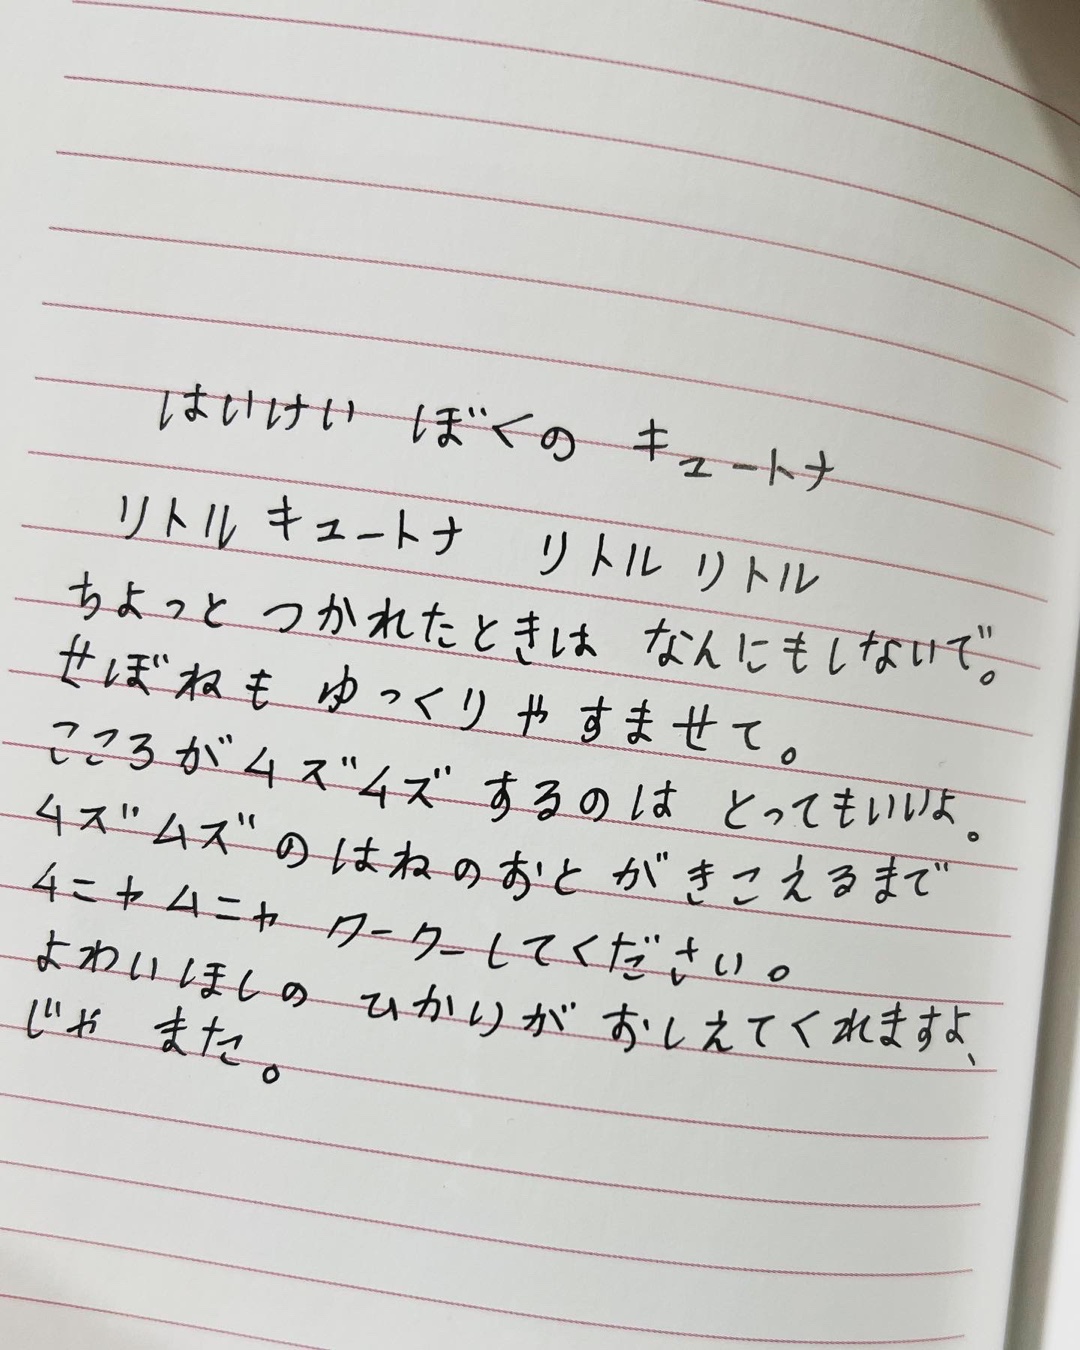 はいけい ぼくの キュートナ
リトル キュートナ リトル リトル
ちょっと つかれたときは なんにもしないで。
せぼねも ゆっくり やすませて。
こころが ムズムズ するのは とってもいいよ。
ムズムズ の はねの おと が きこえるまで
ムニャムニャ ワークーしてください。
よわいほしの ひかりが おしえてくれますよ、
じゃ また。